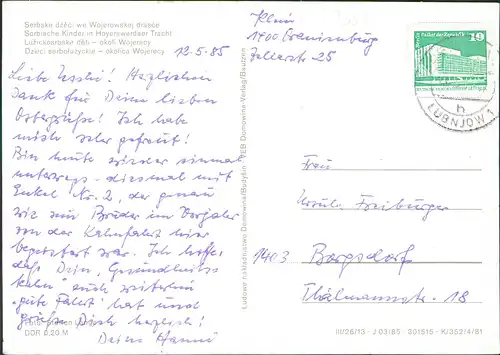 Serbske dźěći we Wojerowskej drasće
Sorbische Kinder in Hoyerswerdaer Tracht
Lužickosrbské děti – okolí Wojerecy
Dzieci serbołużyckie – okolica Wojerecy
12.5.85
Liebe Uschi! Herzlichen
Dank für Deine lieben
Ostergrüße! Ich habe
mich sehr gefreut!
Bin heute wieder einmal
unterwegs - diesmal mit
Enkel Nr. 2, der genau
wie sein Bruder im Vorjahr
von der Kahnfahrt hier
begeistert war. Ich hoffe,
daß Dein "Gesundheits-
kahn" auch weiterhin
"gute Fahrt" hat und
grüße Dich herzlich!
Deine Hanni
DDR 0,20 M
Ludowe nakładnistwo Domowina/Budyšin VEB Domowina-Verlag/Bautzen
Klein
1400 Oranienburg
Zellerstr. 25
Palast der Republik
10
h
LUBNJOW 1
Frau
Ursula Freiburger
1403 Borgsdorf
Thälmannstr. 18
III/26/13 J 03/85 S01515 K/352/4/81